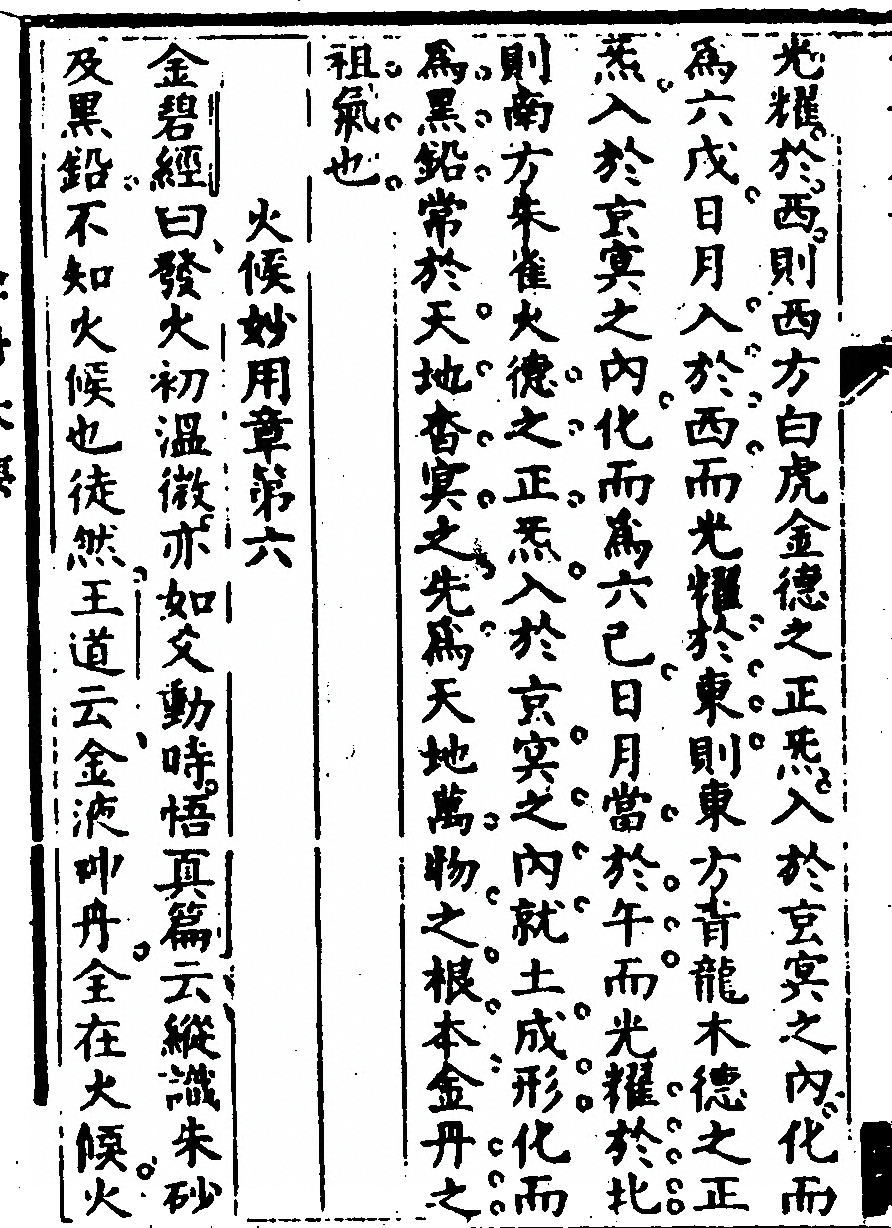 光耀於西則西方白虎金德之正炁入於玄冥之內化而
爲六戊日月入於西而光耀於東則東方青龍木德之正
炁入於玄冥之內化而爲六己日月當於午而光耀於北
則南方朱雀火德之正炁入於玄冥之內就土成形化而
爲黑鉛常於天地杳冥之先爲天地萬物之根本金丹之
祖氣也
火候妙用章第六
金碧經曰發火初溫微亦如爻動時悟真篇云縱識朱砂
及黑鉛不知火候也徒然王道云金液神丹全在火候火